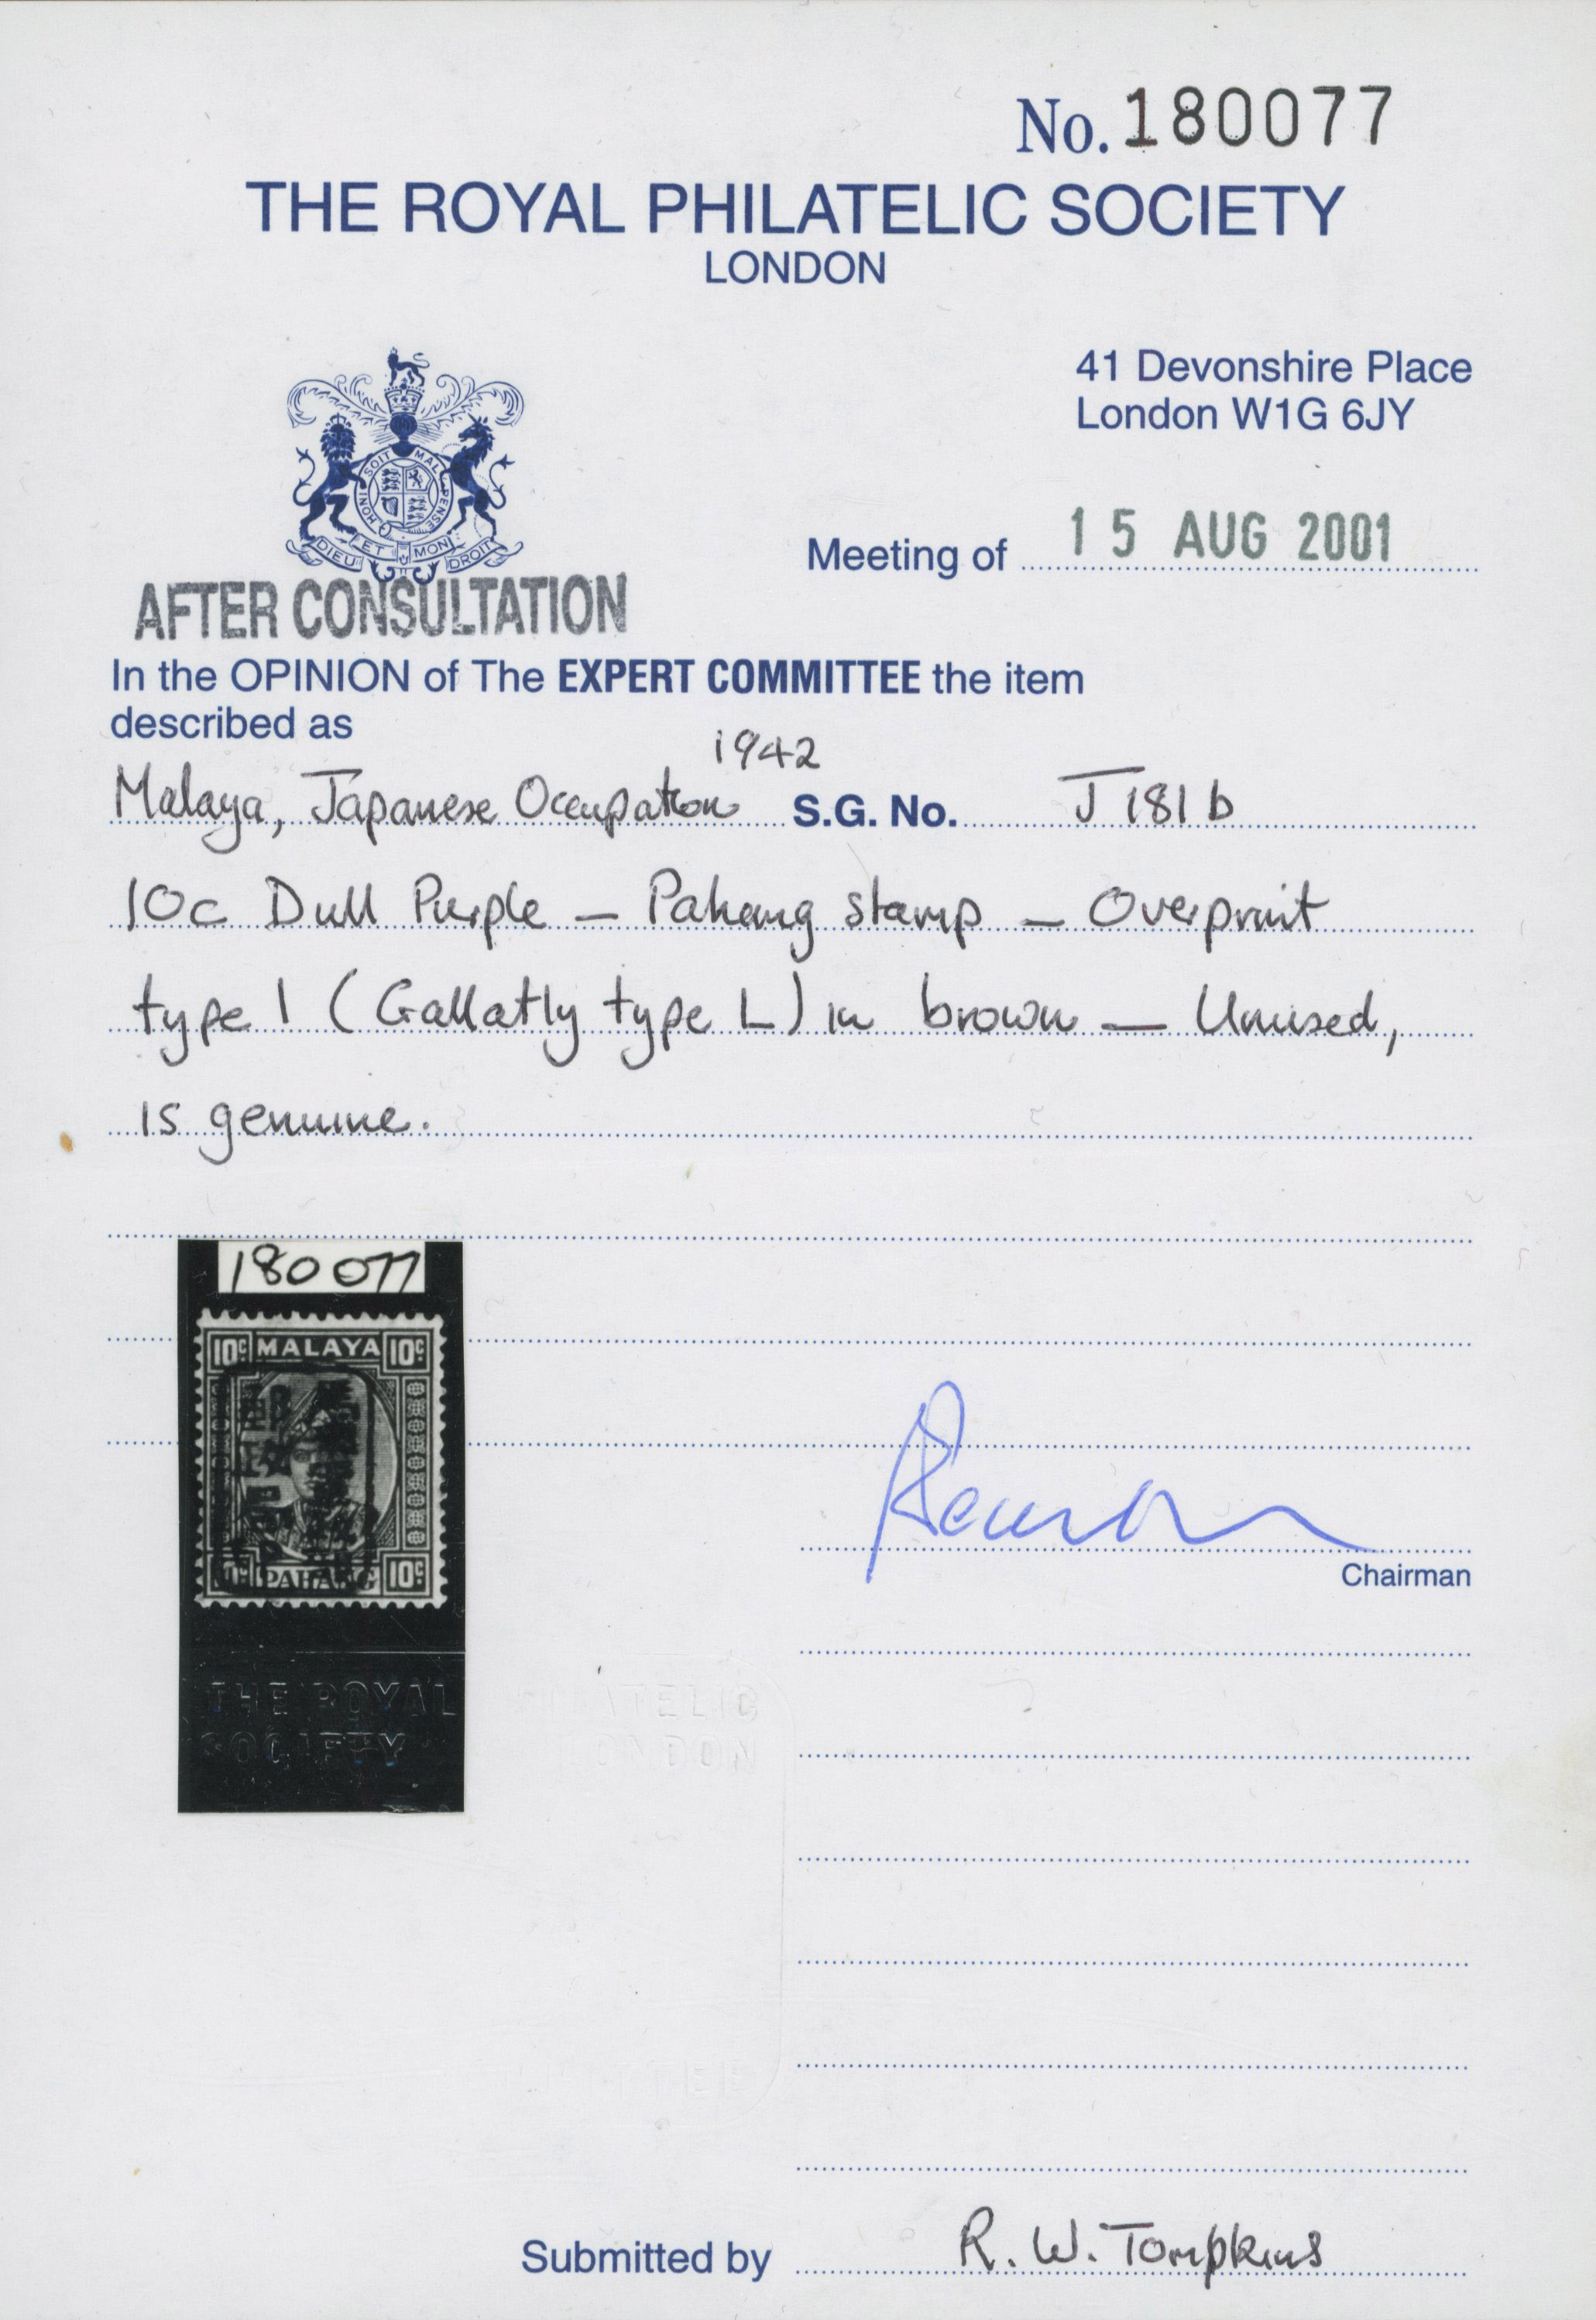 No. 180077
THE ROYAL PHILATELIC SOCIETY
LONDON
41 Devonshire Place
London W1G 6JY
HONI SOIT MAL PENSE
DIEU ET MON DROIT
Meeting of 15 AUG 2001
AFTER CONSULTATION
In the OPINION of The EXPERT COMMITTEE the item
described as
1942
Malaya, Japanese Occupation S.G. No. J181b
10c Dull Purple – Pahang stamp – Overprint
type 1 (Gallatly type L) in brown – Unused,
is genuine.
180077
10c MALAYA 10c
PAHANG 10c
Chairman
THE ROYAL PHILATELIC
SOCIETY LONDON
Submitted by R. W. Tompkins